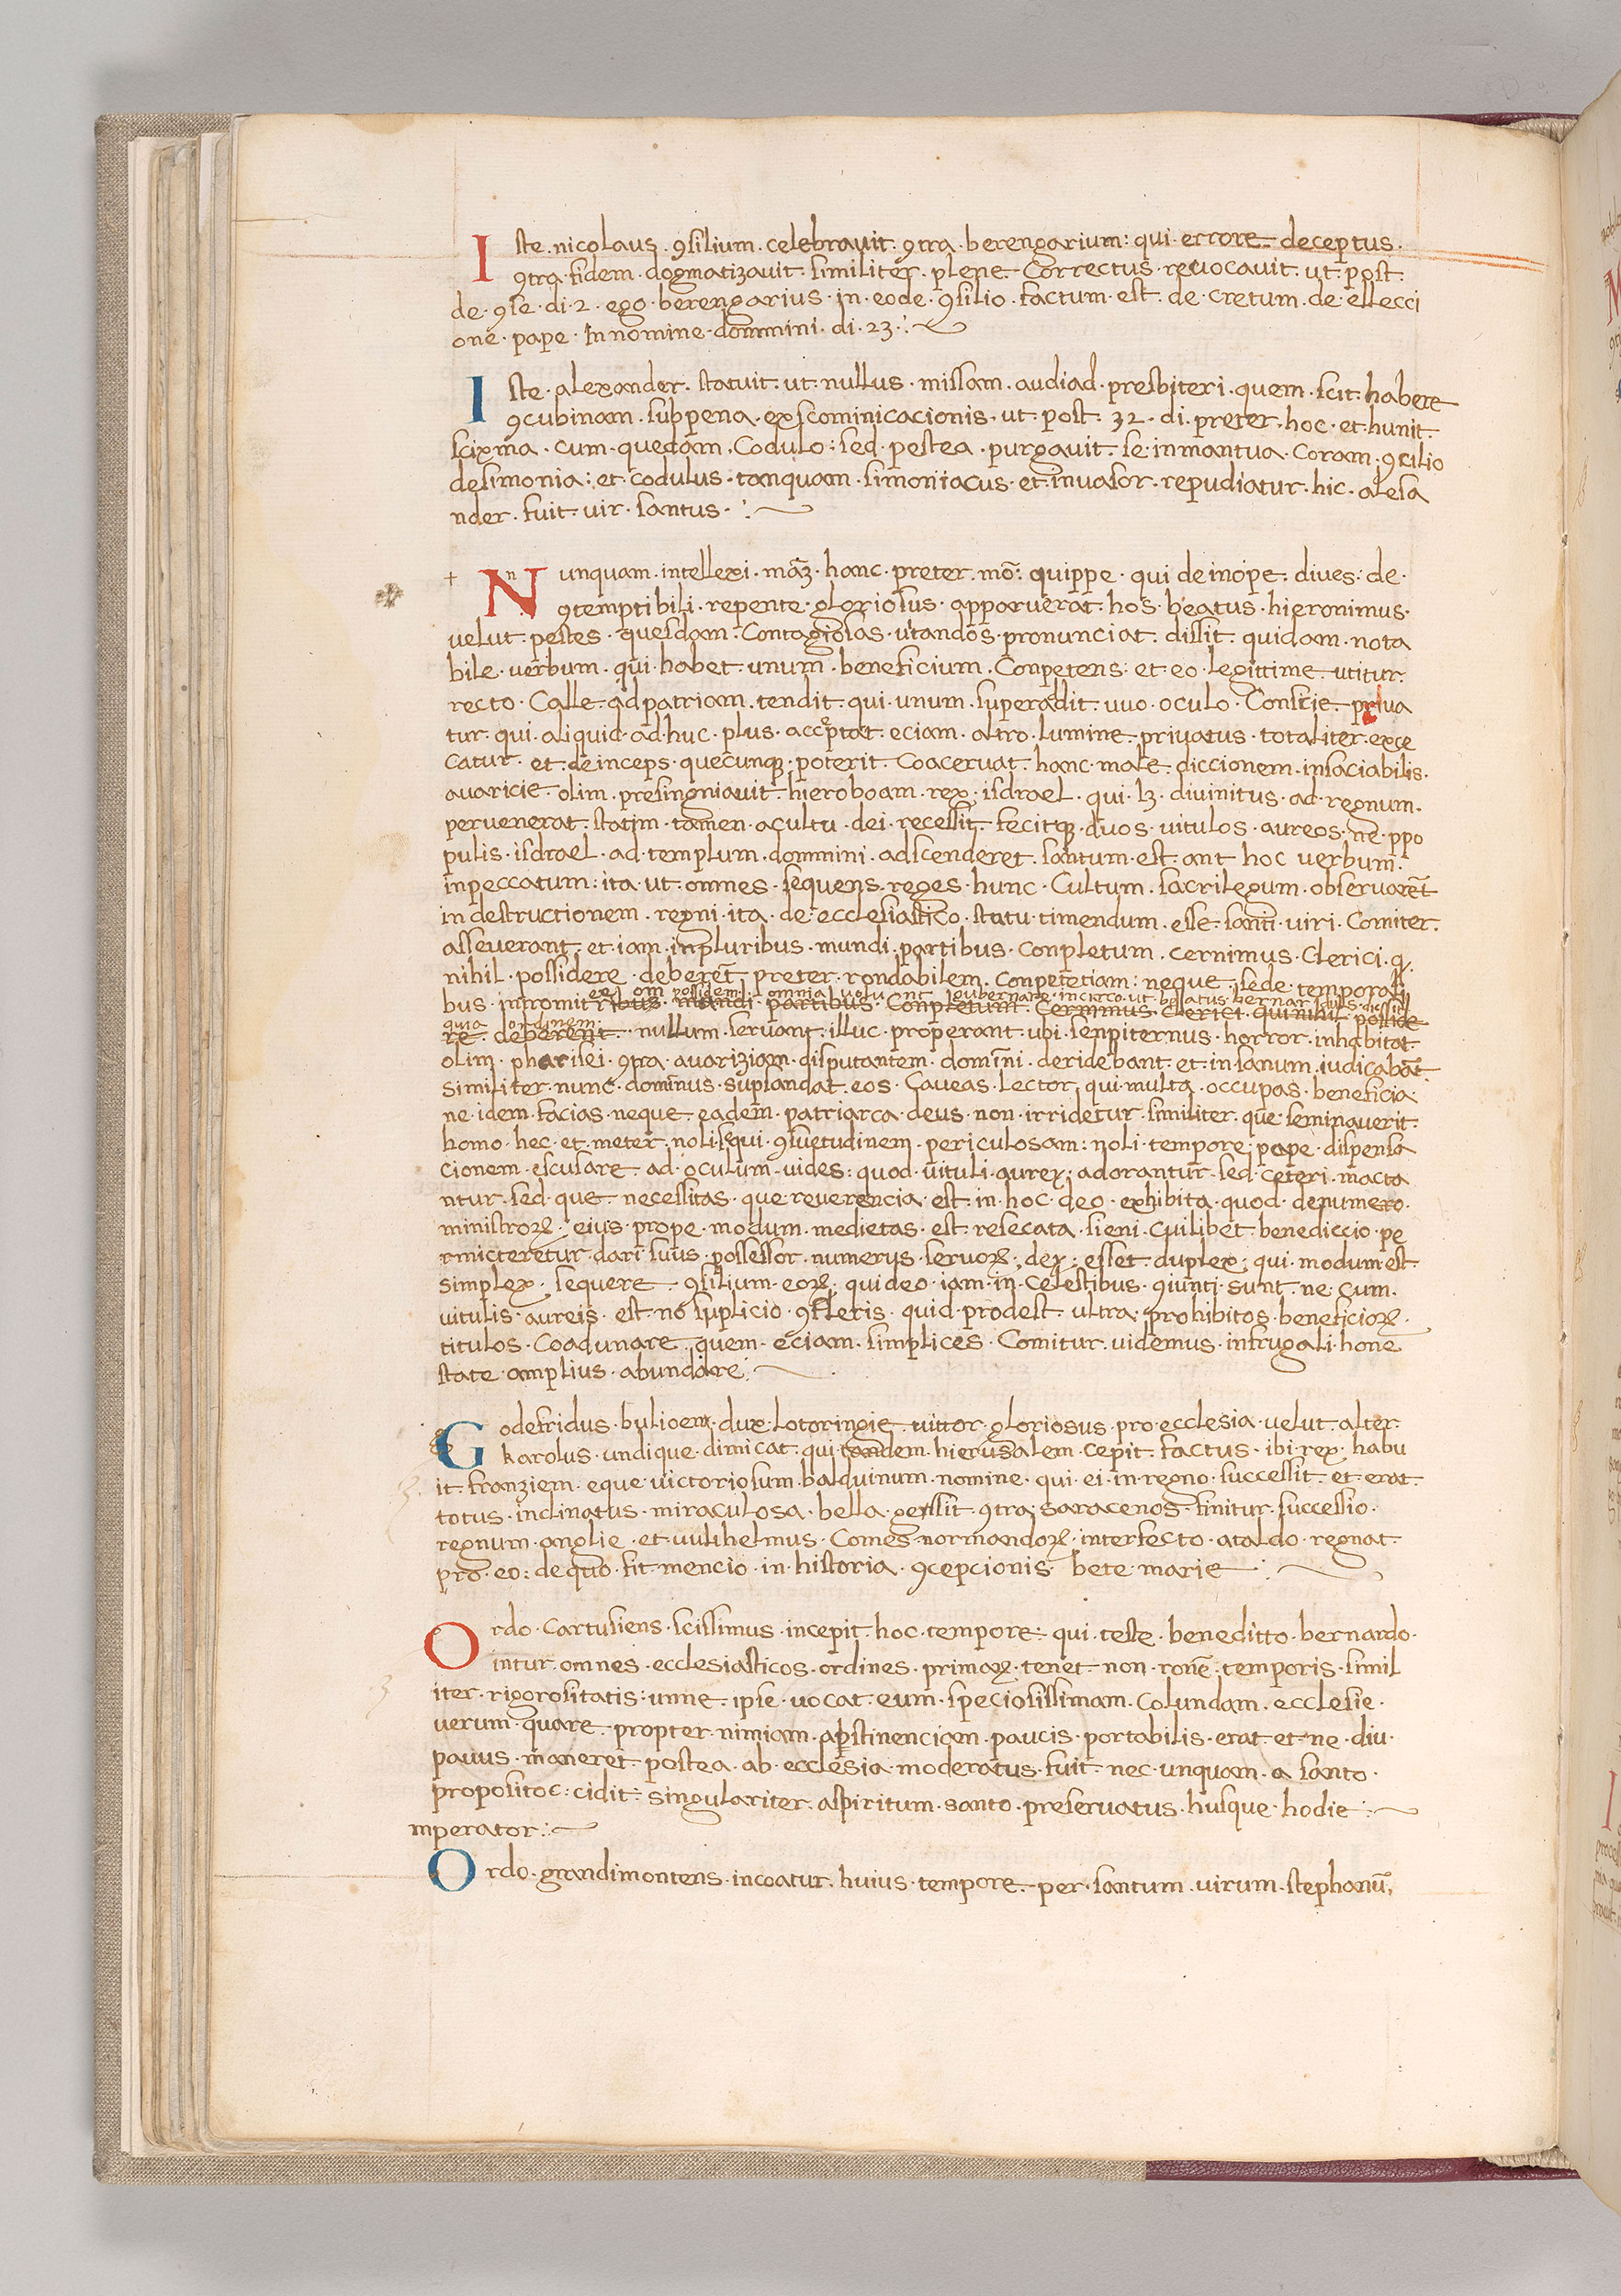 Iste . nicolaus . ꝯsilium . celebrauit . ꝯtra . berengarium : qui . errore . deceptus .
ꝯtra . fidem . dogmatizauit . similiter . plene . Correctus . reuocauit . ut . post .
de . ꝯse . di . 2 . ego . berengarius . in . eode . ꝯsilio . factum . est . de . cretum . de . ellecci
one . pape . In nomine . dommini . di . 23 .
Iste . alexander . statuit . ut . nullus . missam . audiad . presbiteri . quem . scit . habere
ꝯcubinam . sub pena . exscominicacionis . ut . post . 32 . di . preter . hoc . et . hunit .
scixma . cum . quedam . Codulo : sed . postea . purgauit . se . in mantua . Coram . ꝯcilio
de simonia : et . codulus . tanquam . simoniacus . et . inuasor . repudiatur . hic . alesa
nder . fuit . uir . santus .
Nunquam . intellexi . hanc . preter . mo : quippe . qui de inope . diues : de .
ꝯtemptibili . repente . gloriosus . apparuerat . hos . beatus . hieronimus .
velut . pestes . quesdam . Contagiosas . uitandos . pronunciat . dissit . quidam . nota
bile . verbum . qui . habet . unum . beneficium . Conpetens : et . eo . legittime . utitur .
recto . Calle . ad patriam . tendit . qui . unum . superaddit . uuo . oculo . Conscie . priua
tur . qui . aliquid . ad . huc . plus . acceptat . eciam . altro . lumine . priuatus . totaliter . exce
catur . et . deinceps . quecunqꝫ . poterit . Coaceruat . hanc . male . diccionem . insaciabilis .
auaricie . olim . presingniauit . hieroboam . rex . isdrael . qui . lꝫ . diuinitus . ad . regnum .
peruenerat . statim . tamen . a cultu . dei . recessit . fecitqꝫ . duos . uitulos . aureos . ne . ppo
pulis . isdrael . ad . templum . dommini . adscenderet . santum . est . ant hoc verbum .
in peccatum : ita . ut . omnes . sequens . reges . hunc . Cultum . sacrilegum . obseruarēt
in destructionem . regni . ita . de . ecclesiastico . statu . timendum . esse . santi . viri . Comiter .
asseuerant . et . iam . in pluribus . mundi . partibus . Conpletum . cernimus . Clerici . q .
nihil . possidere . deberēt . preter . rondabilem . Conpetetiam : neque . sede . temporali
bus . intromit ribus . mundi . partibus . Conpletum . Cernimus . Clerici . qui nihil . posside
re . deberent . nullum . seruant . illuc . properant . ubi . senpiternus . horror . inhabitat
olim . pharisei . ꝯtra . auariziam . disputantem . domini . deridebant . et . in sanum . iudicabāt .
similiter . nunc . dominus . suplandat . eos . Caueas . lector . qui . multa . occupas . beneficia
ne . idem . facias . neque . eadem . patriarca . deus . non . irridetur . similiter . que . seminauerit .
homo . hec . et . metet . noli . sequi . ꝯsuetudinem . periculosam : noli . tempore . pape . dispensa
cionem . escusare . ad . oculum . uides : quod . uituli . aurex . adorantur . sed . ceteri . macta
ntur . sed . que . necessitas . que reuerencia . est . in . hoc . deo . exhibita . quod . de numero .
ministroꝝ . eius . prope . modum . medietas . est . resecata . sieni . cuilibet . benediccio . pe
rmicteretur . dari suus . possessor . numerus . seruoꝝ . dex . esset . duplex ; qui . modum est .
simplex . sequere . ꝯsilium . eoꝝ . qui deo . iam . in . celestibus . ꝯiunti . sunt . ne . cum .
uitulis . aureis . est . no suplicio . ꝯfleris . quid . prodest . ultra . prohibitos . beneficioꝝ .
titulos . Coadunare . quem . eciam . simplices . Comitur . uidemus . in frugali . hone
state . amplius . abundare :
Godefridus . bulioem . dux . lotoringie . uittor . gloriosus . pro . ecclesia . velut . alter .
karolus . undique . dimicat . qui . tandem . hierusalem . cepit . factus . ibi . rex . habu
it . franziem . eque . uictoriosum . balduinum . nomine . qui . ei . in regno . successit . et . erat .
totus . inclinatus . miraculosa . bella . gessit . ꝯtra . saracenos . finitur . successio .
regnum . anglie . et . uulihelmus . Comes . normandoꝝ . interfecto . ataldo . regnat .
pro . eo : de quo . fit . mencio . in . historia . ꝯcepcionis . bete . marie
Ordo . cartusiens . scissimus . incepit . hoc . tempore . qui . teste . beneditto . bernardo .
intur . omnes . ecclesiasticos . ordines . primaꝝ . tenet . non . ronē . temporis . simil
iter . rigorositatis : unne . ipse . uocat . eum . speciosissimam . Colundam . ecclesie .
verum . quare . propter . nimiam . apstinenciam . paucis . portabilis . erat . et . ne . diu .
pauus . maneret . postea . ab . ecclesia . moderatus . fuit . nec . unquam . a santo .
proposito c : cidit : singulariter . aspiritum . santo . preseruatus . husque . hodie
mperator :
Ordo . grandimontens . incoatur . huius . tempore . per . santum . uirum . stephanū .